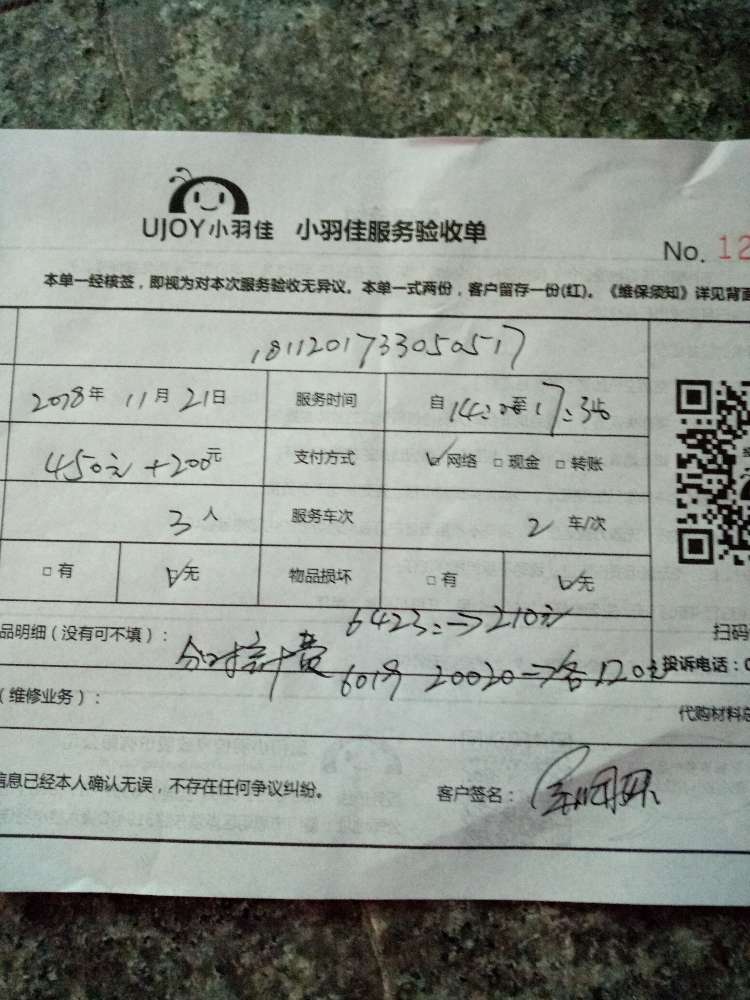 UJOY小羽佳 小羽佳服务验收单
No. 12
本单一经核签，即视为对本次服务验收无异议。本单一式两份，客户留存一份(红)。《维保须知》详见背面
1811201733050517
2018年 11月21日 服务时间 自14: 至17:
450元+200元 支付方式 ☑网络 □现金 □转账
3人 服务车次 2车/次
□有 ☑无 物品损坏 □有 ☑无
6423:→210元
品明细（没有可不填）：
6019 20020→各120元
扫码
投诉电话：0
（维修业务）：
代购材料总
信息已经本人确认无误，不存在任何争议纠纷。
客户签名：